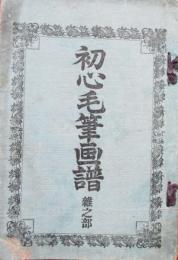 初心毛筆画譜
雑之部